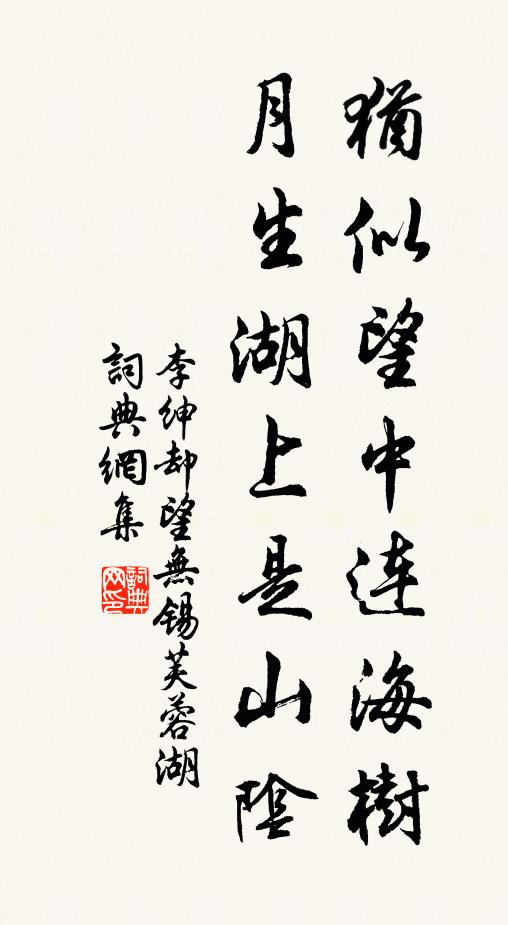 猶似望中連海樹
月生湖上是山陰
李紳却望無錫芙蓉湖
詞典網集
詞典
网印